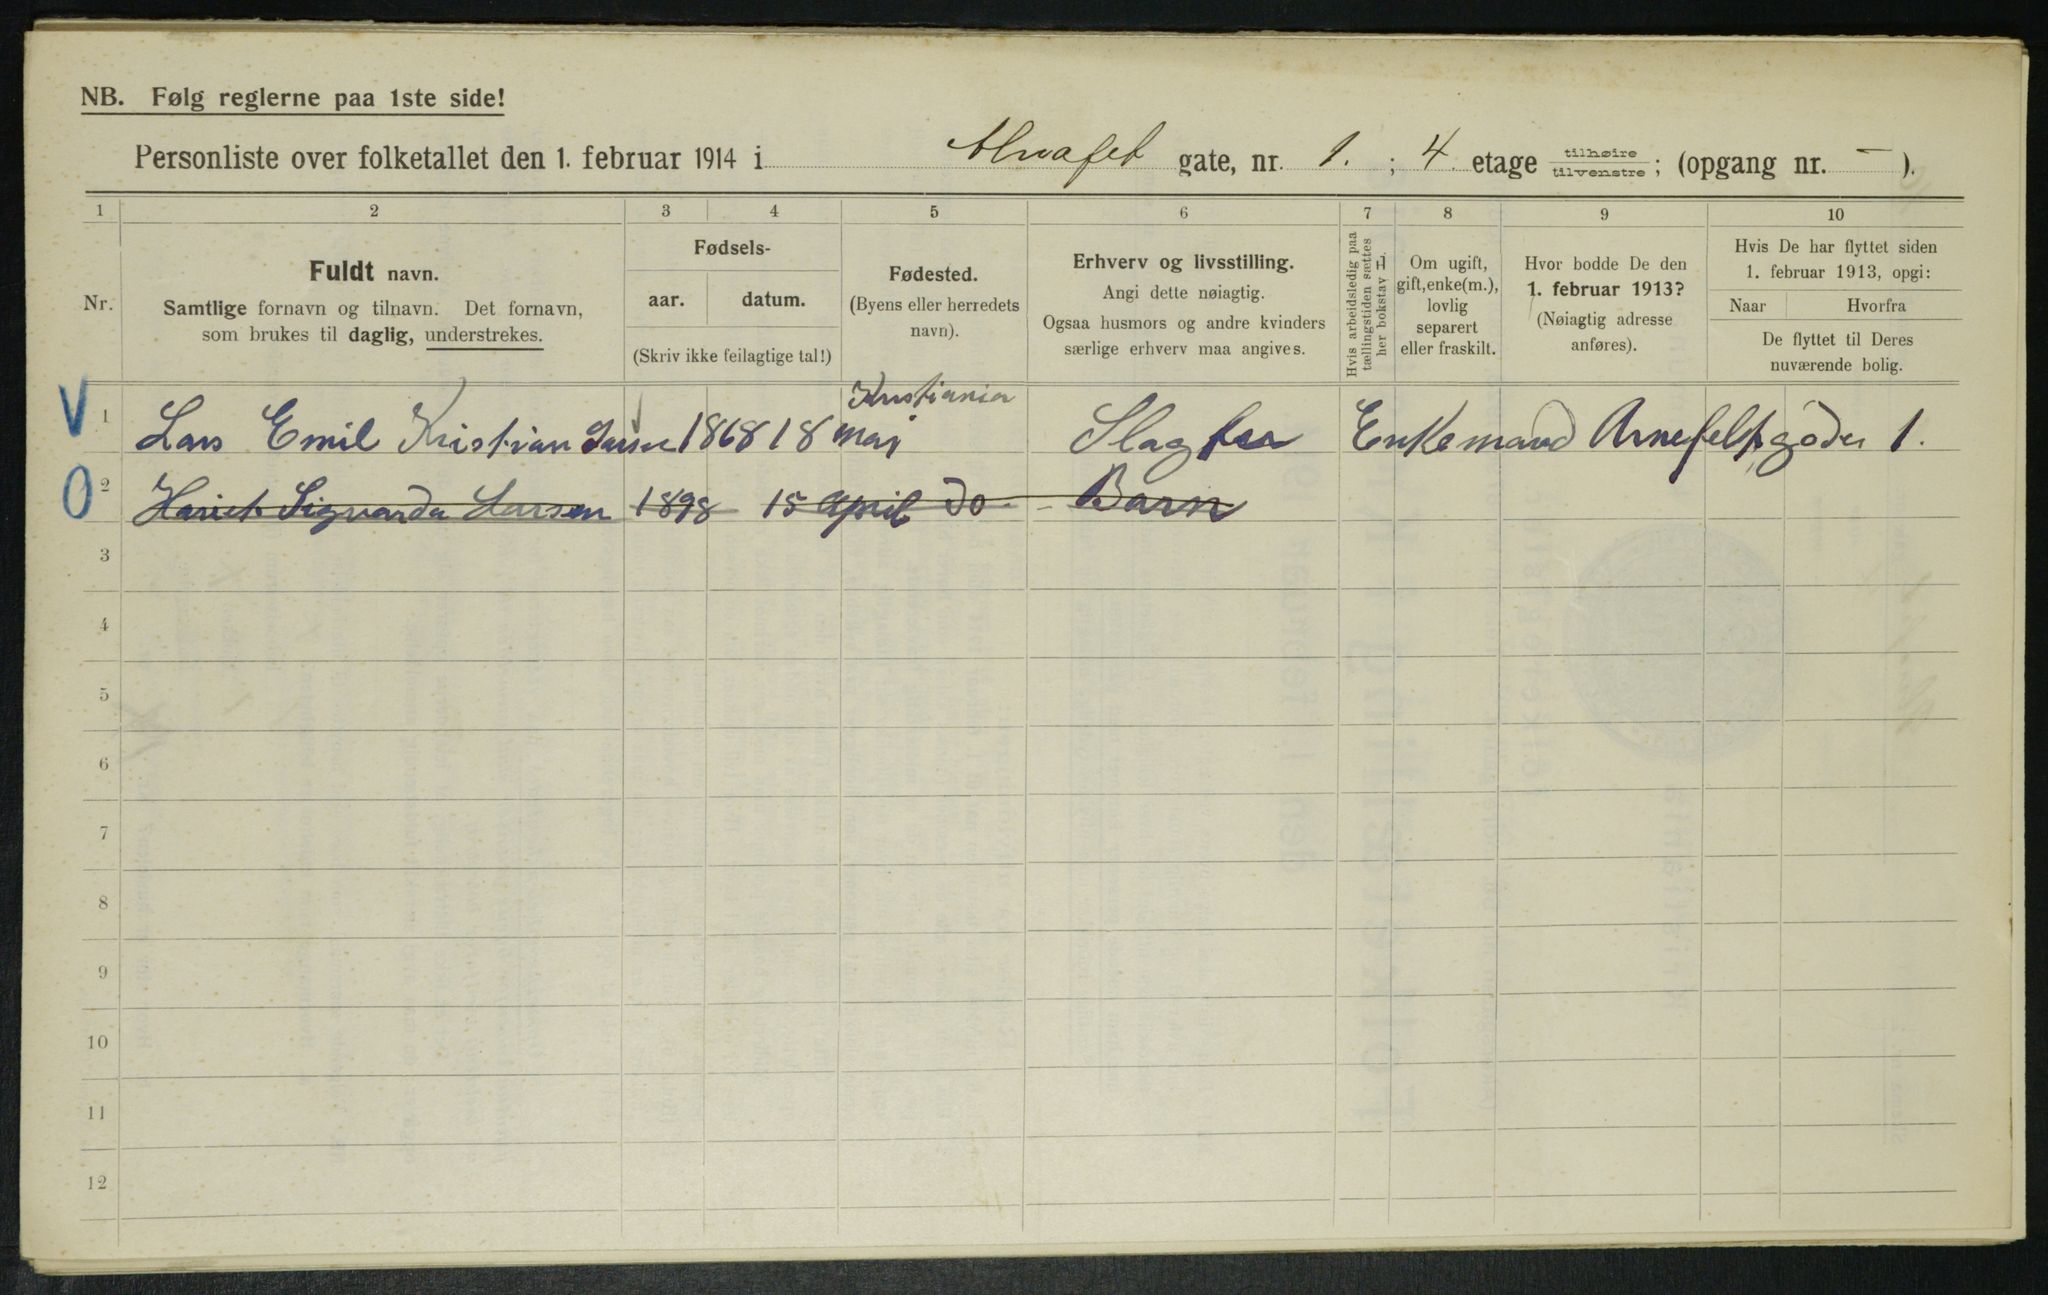 NB. Følg reglerne paa 1ste side!
Personliste over folketallet den 1. februar 1914 i Alnafet gate, nr. 1. ; 4. etage tilhøire tilvenstre ; (opgang nr. – ).
1 2 3 4 5 6 7 8 9 10
Nr.
Fuldt navn.
Samtlige fornavn og tilnavn. Det fornavn,
som brukes til daglig, understrekes.
Fødsels-
aar. datum.
(Skriv ikke feilagtige tal!)
Fødested.
(Byens eller herredets
navn).
Erhverv og livsstilling.
Angi dette nøiagtig.
Ogsaa husmors og andre kvinders
særlige erhverv maa angives.
Hvis arbeidsledig paa
tællingstiden sættes
her bokstav L
Om ugift,
gift, enke(m.),
lovlig
separert
eller fraskilt.
Hvor bodde De den
1. februar 1913?
(Nøiagtig adresse
anføres).
Hvis De har flyttet siden
1. februar 1913, opgi:
Naar Hvorfra
De flyttet til Deres
nuværende bolig.
Kristiania
V 1 Lars Emil Kristian Larsen 1868 18 maj Slagter Enkemand Arnefeltsgåden 1.
O 2 Hariet Sigvarda Larsen 1898 15 april do - Barn
3
4
5
6
7
8
9
10
11
12